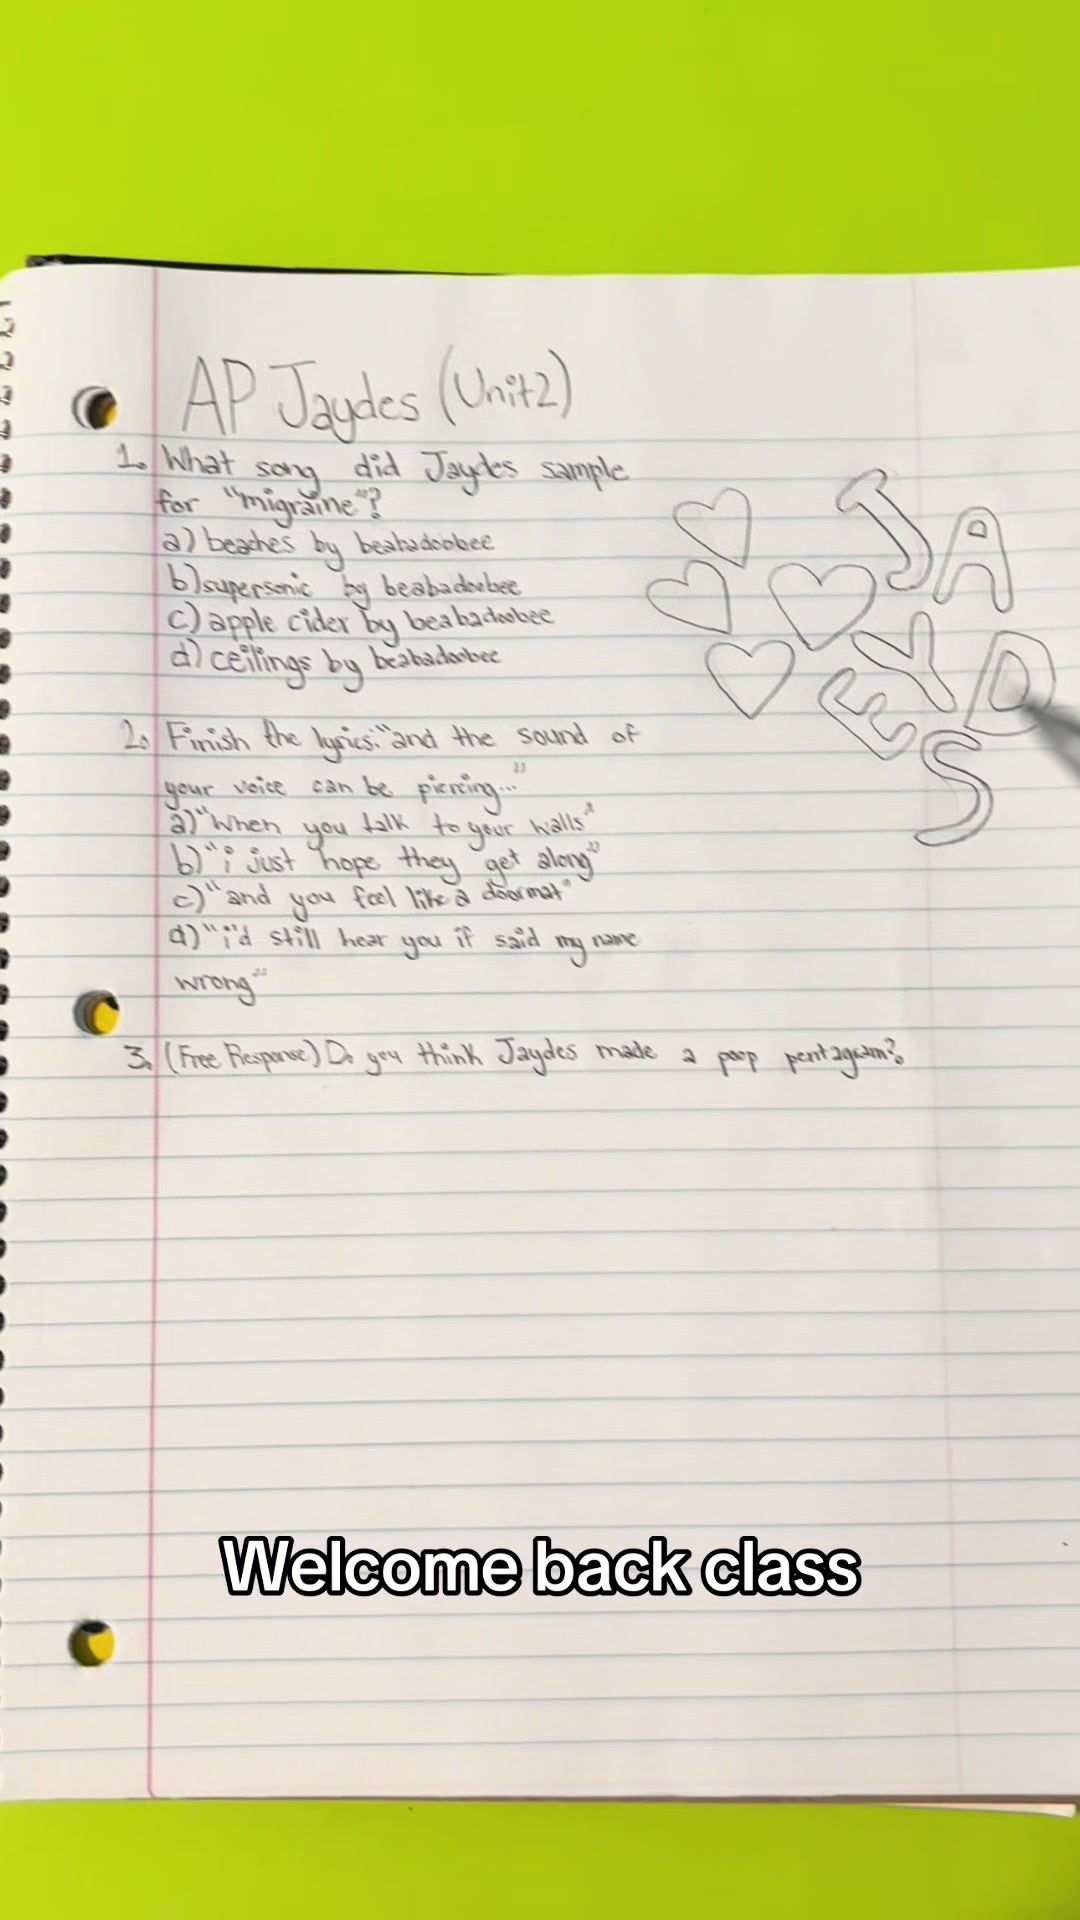 AP Jaydes (Unit2)
1. What song did Jaydes sample
for "migraine"?
a) beaches by beabadoobee
b) supersonic by beabadoobee
c) apple cider by beabadoobee
d) ceilings by beabadoobee
JAYDES
2. Finish the lyrics: "and the sound of
your voice can be piercing..."
a) "When you talk to your walls"
b) "i just hope they get along"
c) "and you feel like a doormat"
d) "i'd still hear you if said my name
wrong"
3. (Free Response) Do you think Jaydes made a poop pentagram?
Welcome back class